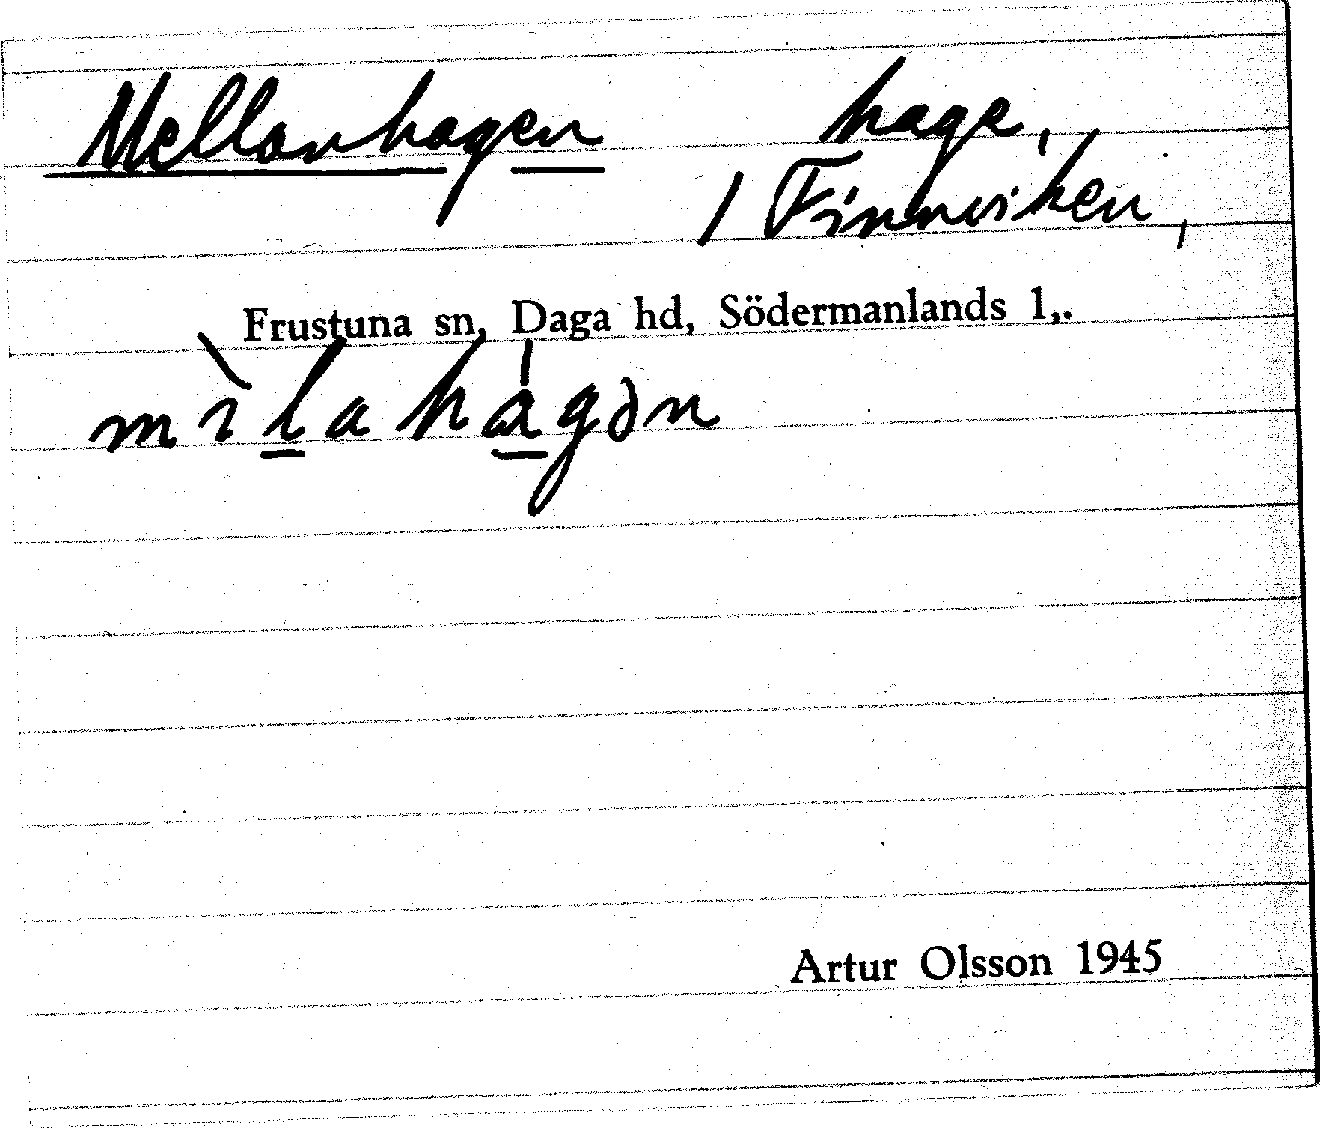 Mellanhagen hage,
/ Finnviken,
Frustuna sn, Daga hd, Södermanlands l,.
mìlahágən
Artur Olsson 1945